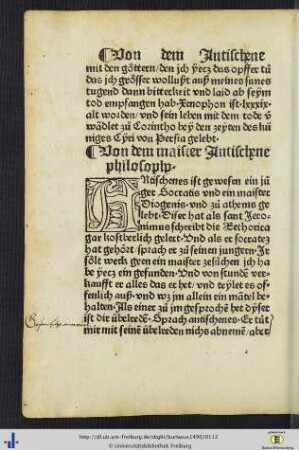 Von dem Antischene
mit den göttern/den jch yetz das opffer tů
das jch grösser wollust auß meines sunes
tugend dann bitterkeit vnd laid ab seym
tod empfangen hab·Xenophon ist·lxxxix·
alt worden/vnd sein leben mit dem tode v̈
wādlet zů Corintho bey den zeyten des kü
niges Cyri von Persia gelebt·
Von dem maister Antischene
philosopho·
ANtischenes ist gewesen ein jü
ger Socratis vnd ein maister
Diogenis·vnd zů athems ge
lebt·Diser hat als sant Jero-
nimus schreibt die Rethorica
gar kostberlich gelert·Vnd als er socratez
hat gehört/sprach er zů seinen jungern·Jr
sölt weck geen ein maister zesůchen jch ha
be yetz ein gefunden·Vnd von stundē ver-
kaufft er alles das er het/vnd teylet es of-
fenlich auß·vnd wz jm allein ein mātel be-
halten·Als einer zů jm gesprochē het dyser
ist dir übelredē·Sprach antischenes·Er tůt
mir mit seinē übelreden nichs abnemē/aber
http://dl.ub.uni-freiburg.de/diglit/burlaeus1490/0112
© Universitätsbibliothek Freiburg